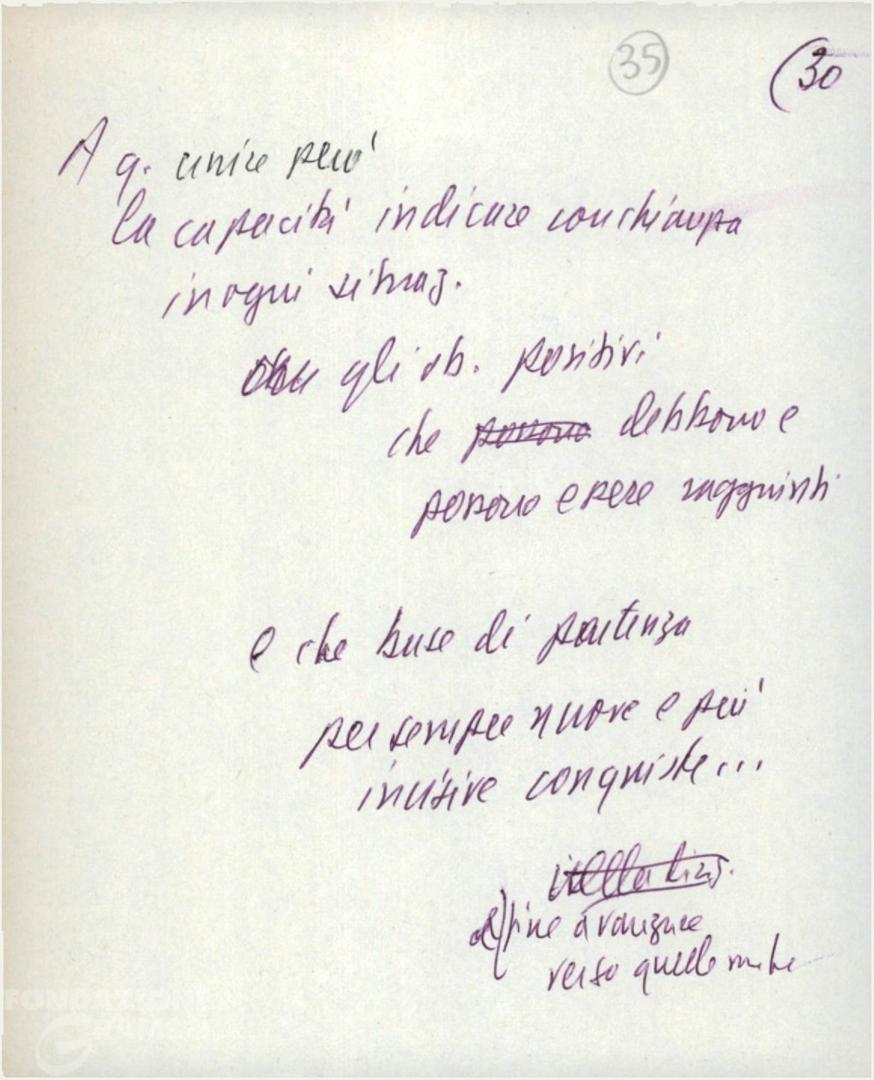 35
(30
A q. unire però
la capacità indicare con chiarezza
in ogni situaz.
gli ob. positivi
che possono debbono e
possono essere raggiunti
e che base di partenza
per sempre nuove e più
incisive conquiste...
fine avanzare
verso quelle mete
FONDAZIONE